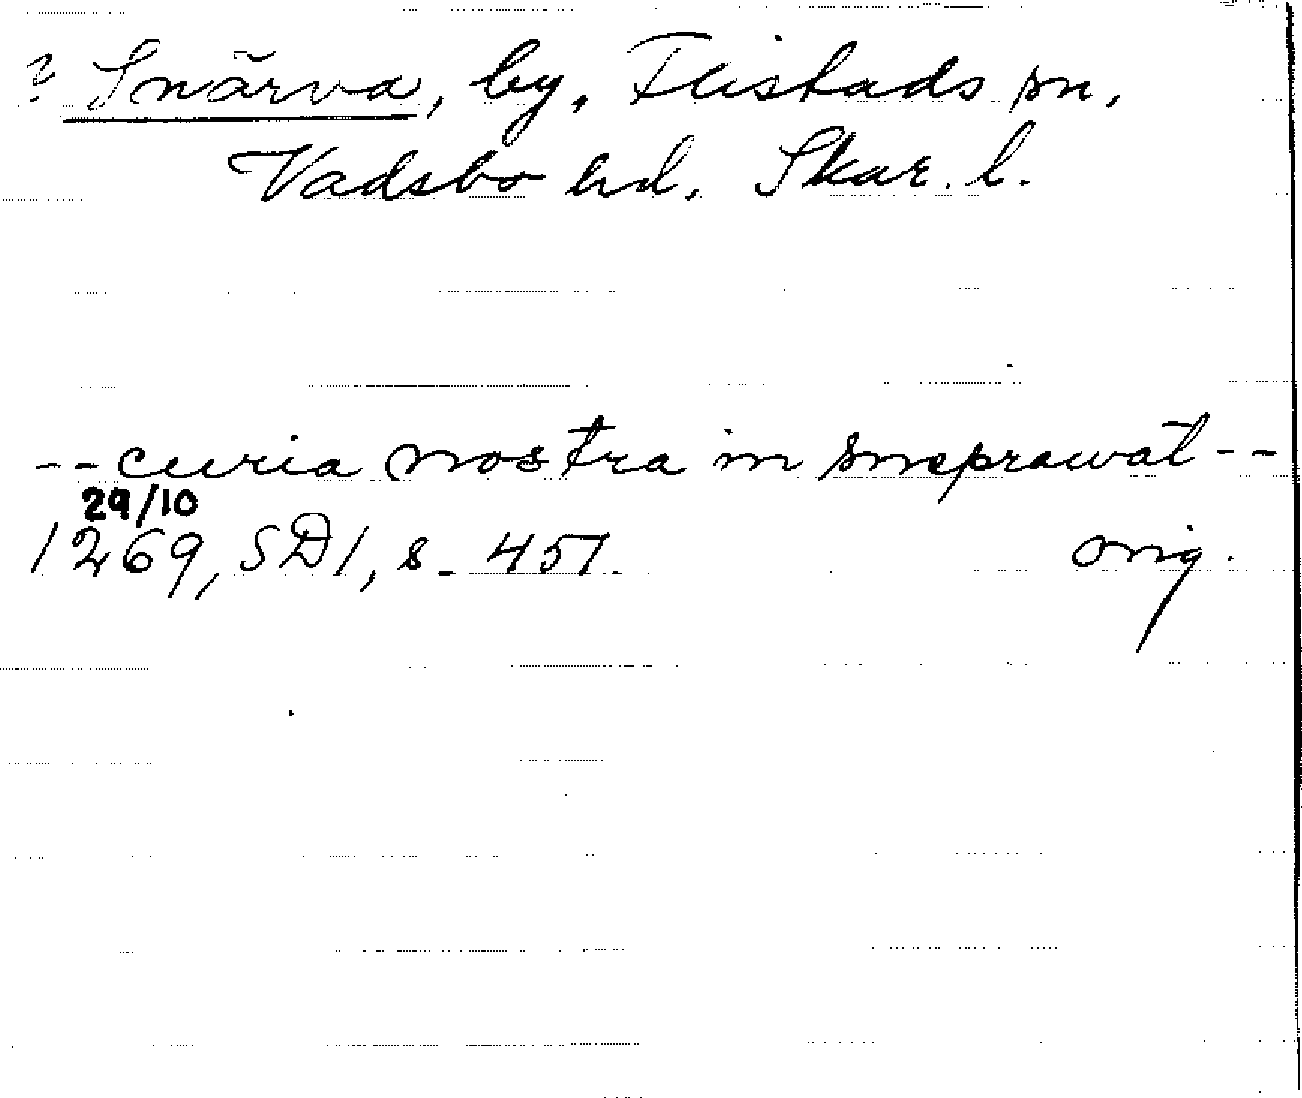 ? Snärva, by, Flistads sn,
Vadsbo hd. Skar. l.
-- curia nostra in sneprawat --
29/10
1269, SD1, s. 451. orig.